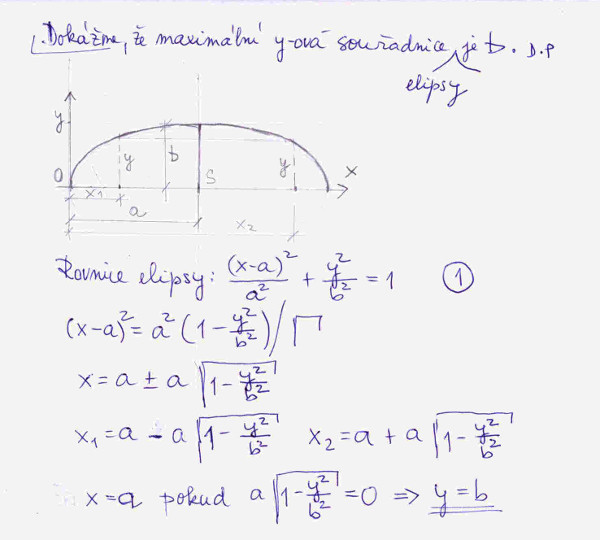 Dokážme, že maximální y-ová souřadnice elipsy je b. D.P
y
0
y
b
S
y
x
x₁
a
x₂
Rovnice elipsy: (x-a)²/a² + y²/b² = 1 ①
(x-a)² = a²(1 - y²/b²) / √
x = a ± a √(1 - y²/b²)
x₁ = a - a √(1 - y²/b²) x₂ = a + a √(1 - y²/b²)
x = a pokud a √(1 - y²/b²) = 0 ⇒ y = b